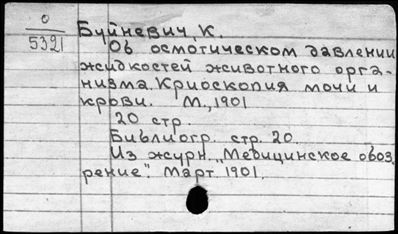 0
5321
Буйневич, К.
Об осмотическом давлении
жидкостей животного орга-
низма. Криоскопия мочи и
крови. М., 1901
20 стр.
Библиогр. стр. 20.
Из журн. „Медицинское обоз-
рение". Март 1901.